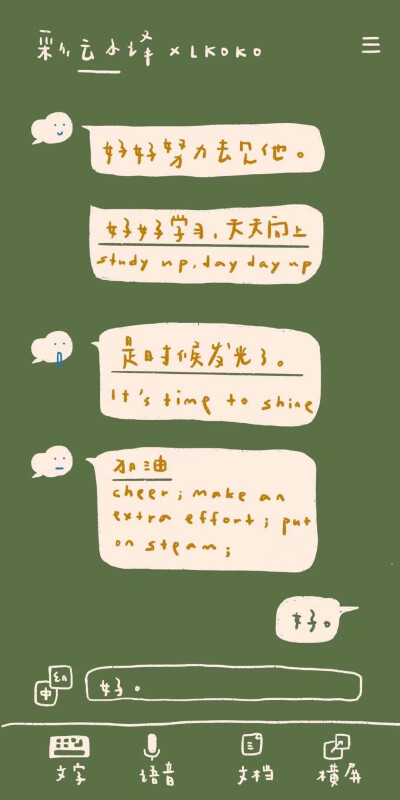 彩云小译 × LKOKO
好好努力去见他。
好好学习,天天向上
study up, day day up
是时候发光了。
It's time to shine
加油
cheer; make an
extra effort; put
on steam;
好。
中 En
好。
文字 语音 文档 横屏